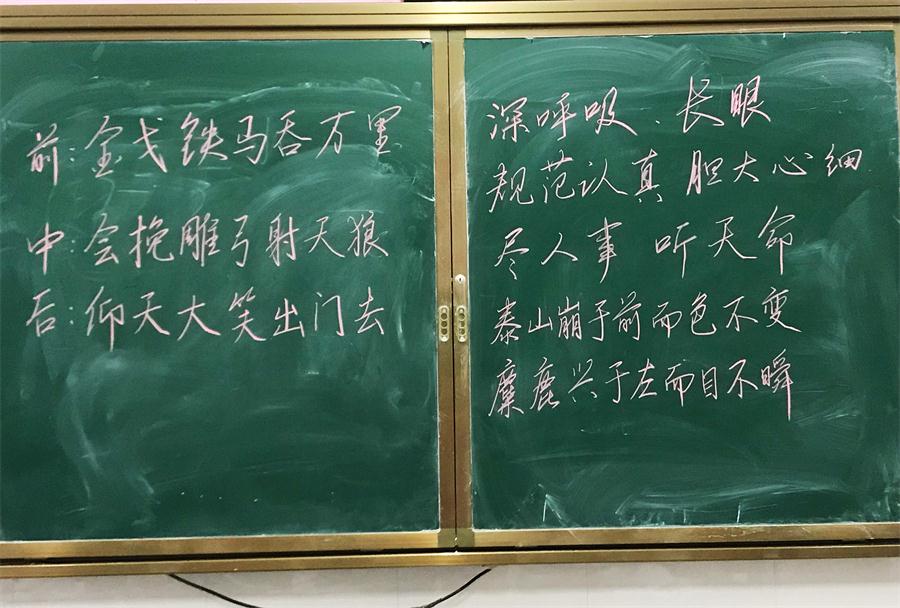 前:金戈铁马吞万里
中:会挽雕弓射天狼
后:仰天大笑出门去
深呼吸、长眼
规范认真 胆大心细
尽人事 听天命
泰山崩于前而色不变
麋鹿兴于左而目不瞬